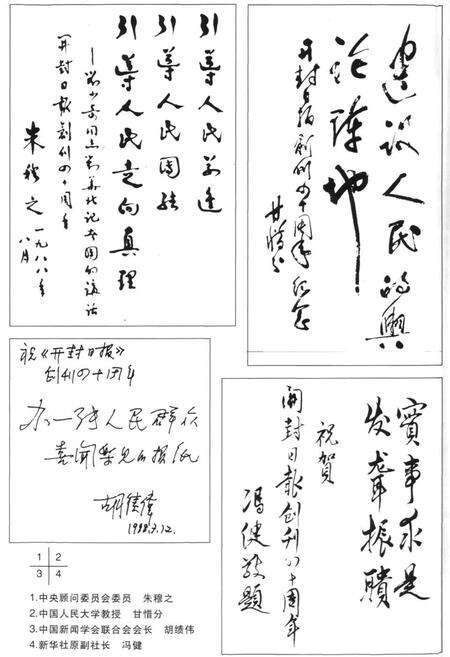 引导人民前进
引导人民团结
引导人民走向真理
——刘少奇同志对华北记者团的谈话
开封日报创刊四十周年
朱穆之
一九八八年
八月
建设人民的舆
论阵地
开封日报创刊四十周年纪念
甘惜分
祝《开封日报》
创刊四十周年
办一张人民群众
喜闻乐见的报纸
胡绩伟
1988.9.12.
實事求是
发聋振聩
祝賀
開封日報创刊四十周年
馮健敬題
1 2
3 4
1.中央顾问委员会委员 朱穆之
2.中国人民大学教授 甘惜分
3.中国新闻学会联合会会长 胡绩伟
4.新华社原副社长 冯健